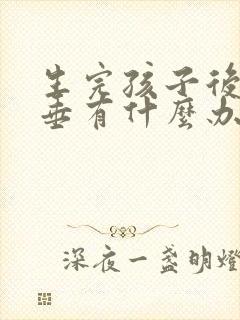 生完孩子後
垂有什麼办
深夜一盏明燈